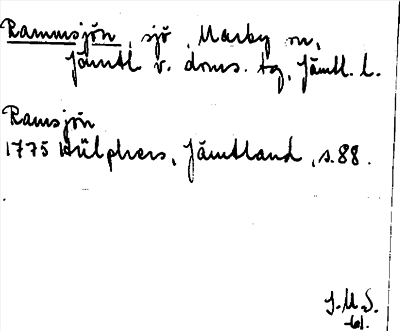 Rammsjön, sjö, Marby sn,
Jämtl v. doms. tg, Jämtl. l.
Ramsjön
1775 Hülphers, Jämtland, s. 88.
J.M.S.
-61.